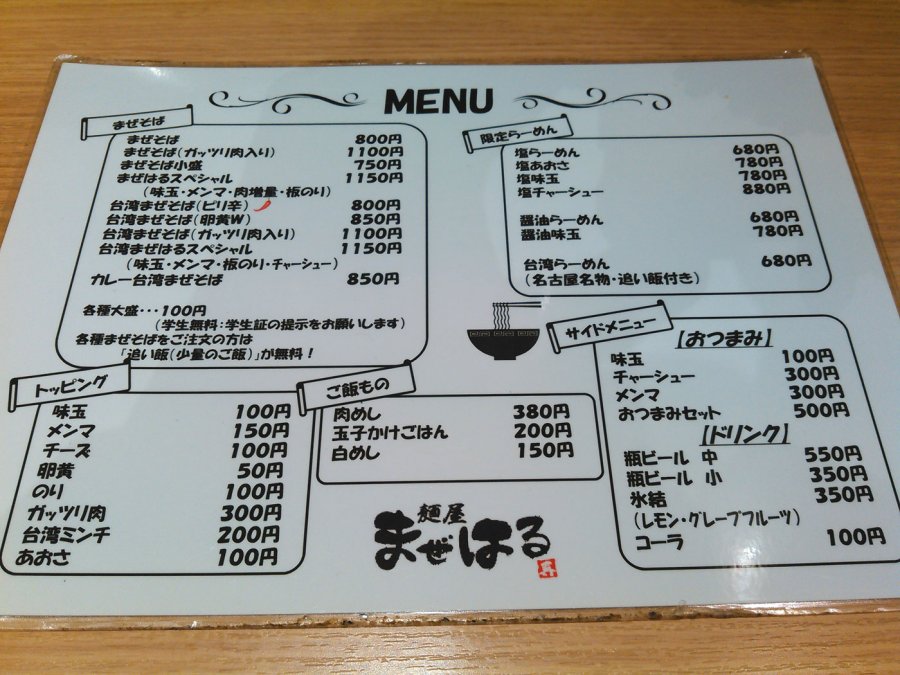 MENU
まぜそば
まぜそば 800円
まぜそば(ガッツリ肉入り) 1100円
まぜそば小盛 750円
まぜはるスペシャル 1150円
(味玉・メンマ・肉増量・板のり)
台湾まぜそば(ピリ辛) 800円
台湾まぜそば(卵黄W) 850円
台湾まぜそば(ガッツリ肉入り) 1100円
台湾まぜはるスペシャル 1150円
(味玉・メンマ・板のり・チャーシュー)
カレー台湾まぜそば 850円
各種大盛・・・100円
(学生無料:学生証の提示をお願いします)
各種まぜそばをご注文の方は
「追い飯(少量のご飯)」が無料!
限定らーめん
塩らーめん 680円
塩あおさ 780円
塩味玉 780円
塩チャーシュー 880円
醤油らーめん 680円
醤油味玉 780円
台湾らーめん 680円
(名古屋名物・追い飯付き)
トッピング
味玉 100円
メンマ 150円
チーズ 100円
卵黄 50円
のり 100円
ガッツリ肉 300円
台湾ミンチ 200円
あおさ 100円
ご飯もの
肉めし 380円
玉子かけごはん 200円
白めし 150円
サイドメニュー
【おつまみ】
味玉 100円
チャーシュー 300円
メンマ 300円
おつまみセット 500円
【ドリンク】
瓶ビール 中 550円
瓶ビール 小 350円
氷結 350円
(レモン・グレープフルーツ)
コーラ 100円
麺屋
まぜはる